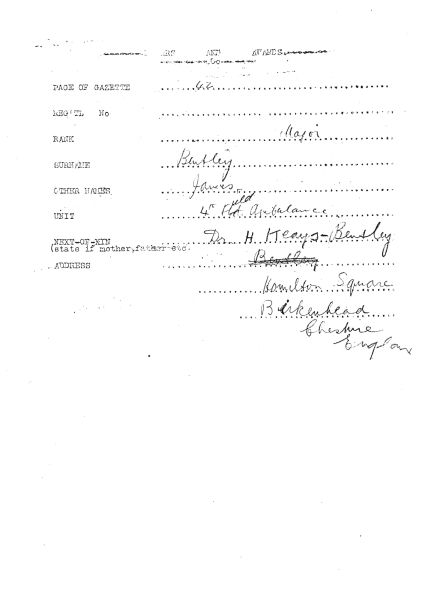 AND AWARDS
PAGE OF GAZETTE
REG'TL No
RANK Major
SURNAME Bentley
OTHER NAMES James
UNIT 4th Field Ambulance
NEXT-OF-KIN Dr H Keays-Bentley
(state if mother,father etc.
ADDRESS Bentley
Hamilton Square
Birkenhead
Cheshire
England